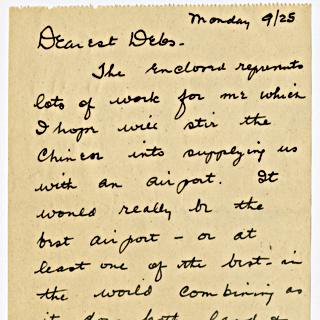 Monday 9/25
Dearest Debs.
The enclosed represents
lots of work for me which
I hope will stir the
Chinese into supplying us
with an airport. It
would really be the
best airport – or at
least one of the best – in
the world combining as
it does both land &